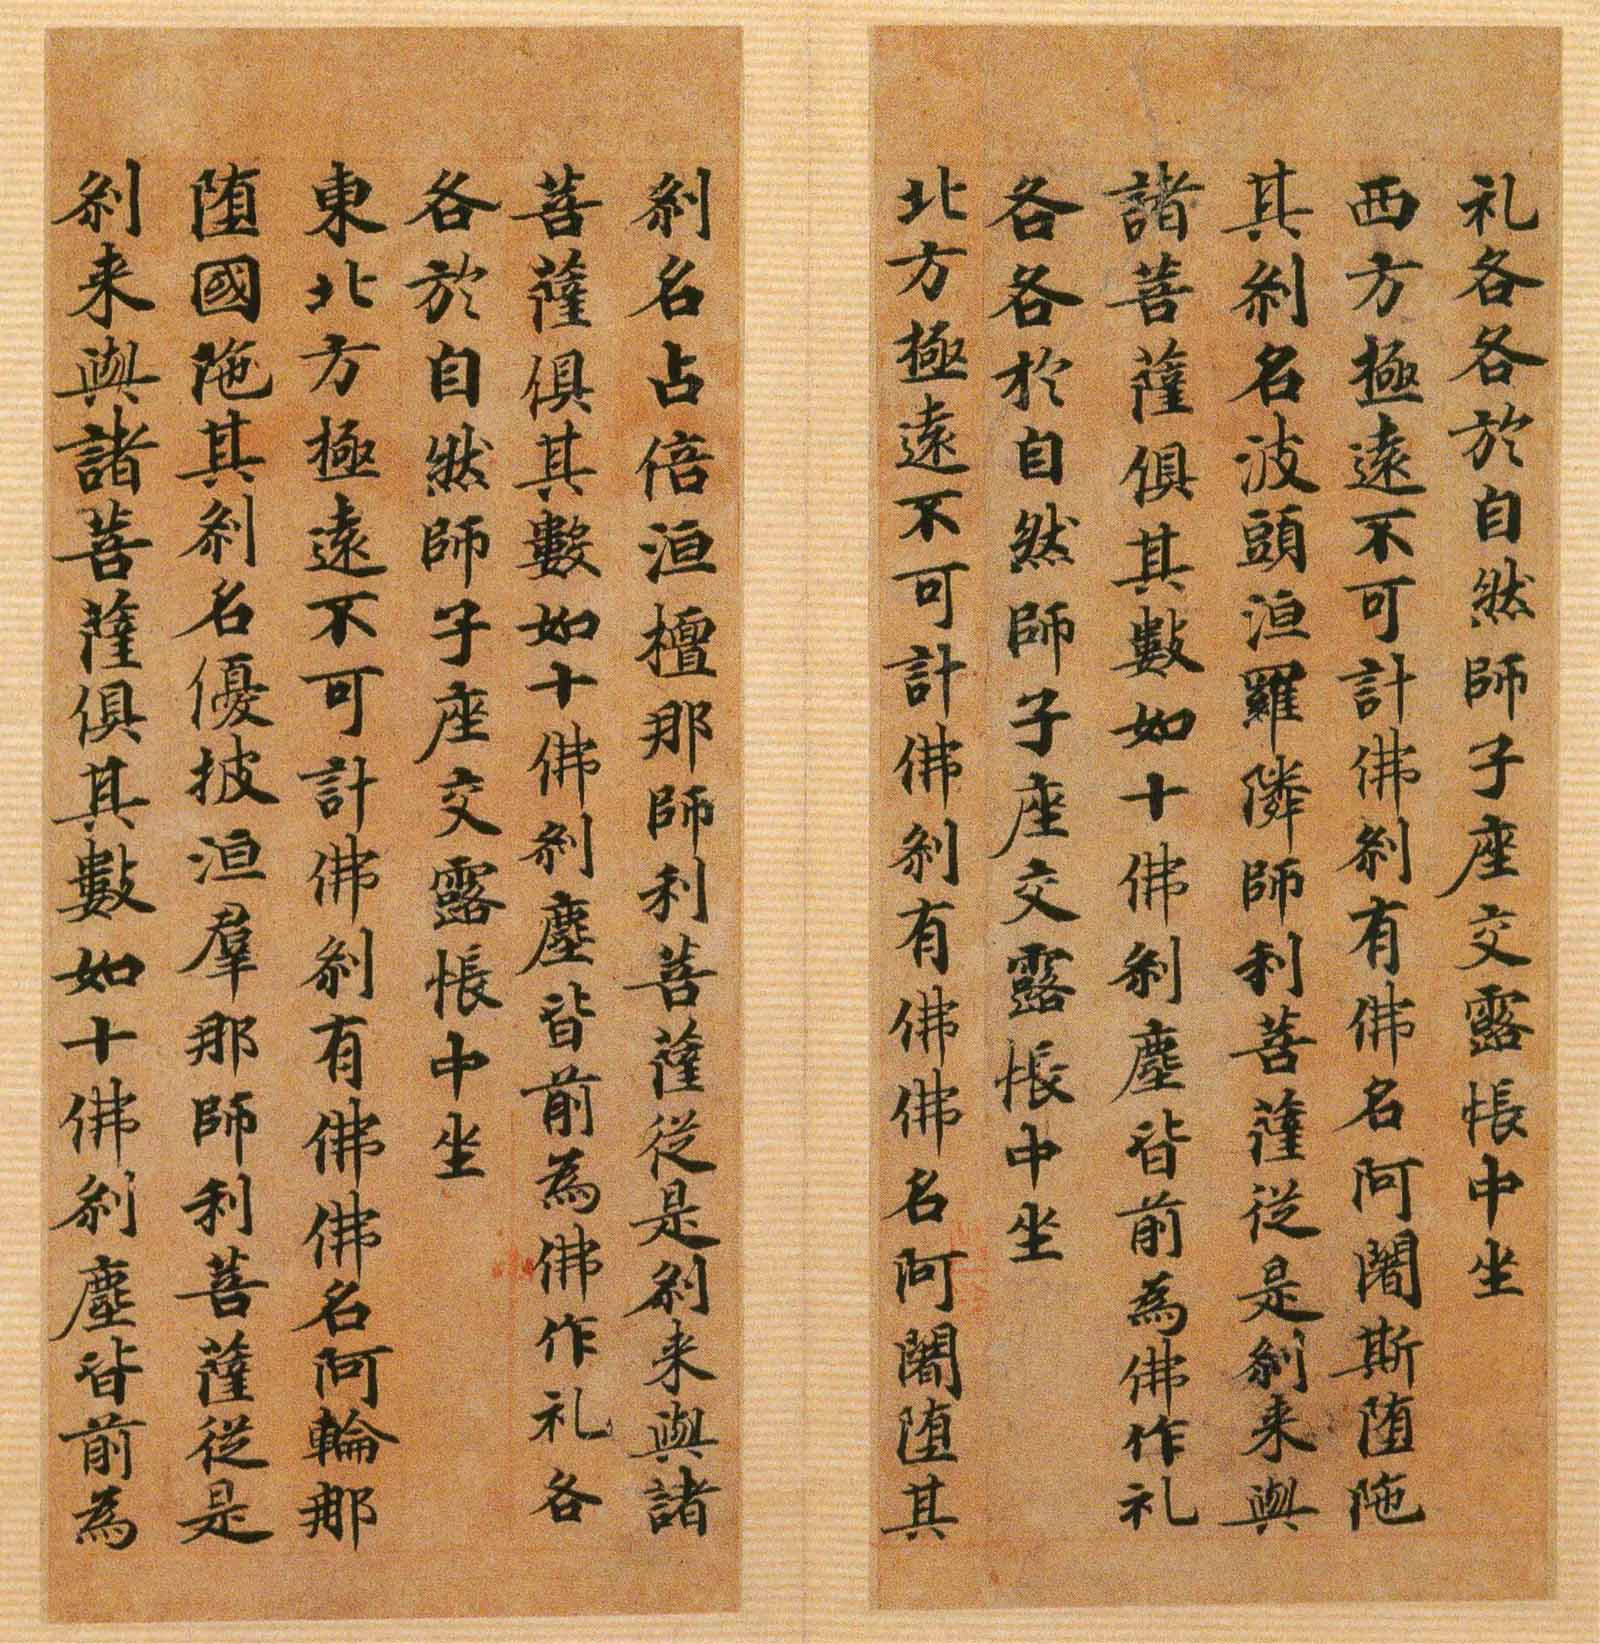 礼各各於自然師子座交露帳中坐
西方極遠不可計佛刹有佛名阿闍斯堕陁
其刹名波頭洹羅隣師利菩薩従是刹来與
諸菩薩俱其數如十佛刹塵皆前為佛作礼
各各於自然師子座交露帳中坐
北方極遠不可計佛刹有佛佛名阿闍堕其
刹名占倍洹檀那師利菩薩従是刹来與諸
菩薩俱其數如十佛刹塵皆前為佛作礼各
各於自然師子座交露帳中坐
東北方極遠不可計佛刹有佛佛名阿輪那
堕國陁其刹名優披洹羣那師利菩薩従是
刹来與諸菩薩俱其數如十佛刹塵皆前為